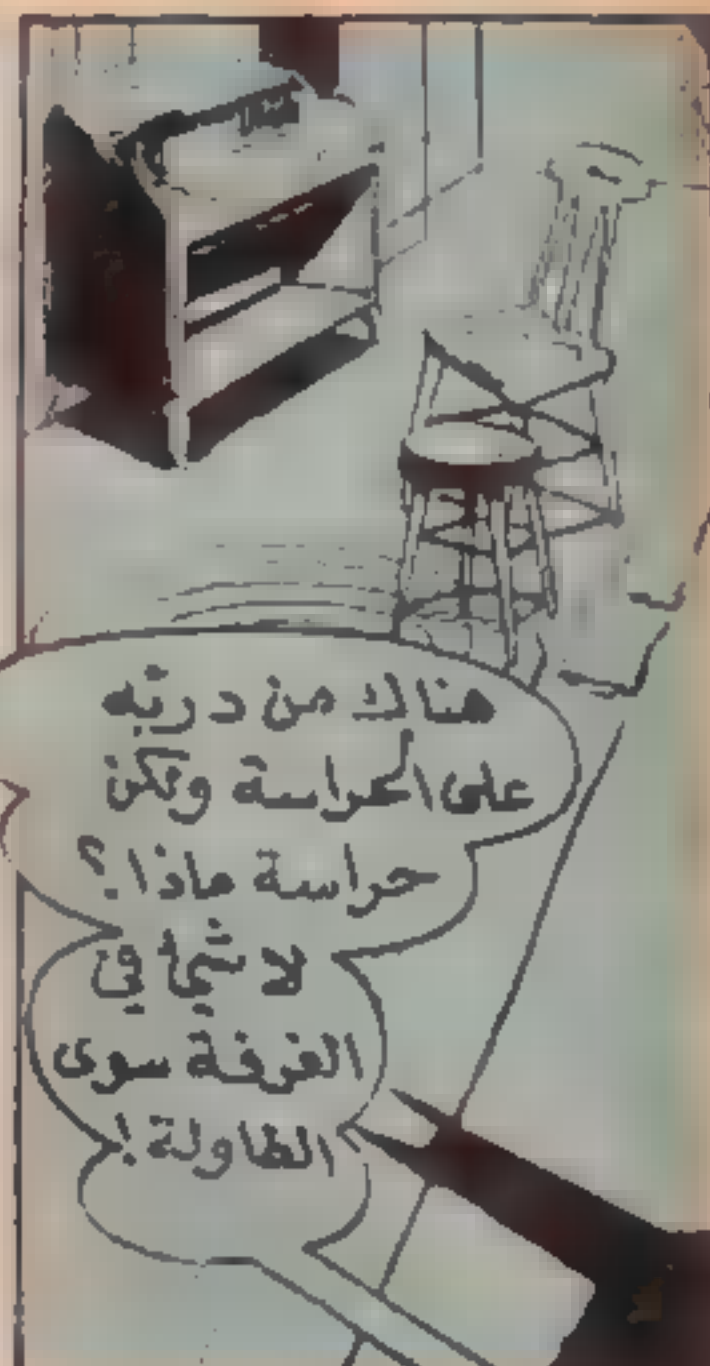 هناك من دربه
على الحراسة ولكن
حراسة ماذا؟
لا شيء في
الغرفة سوى
الطاولة!